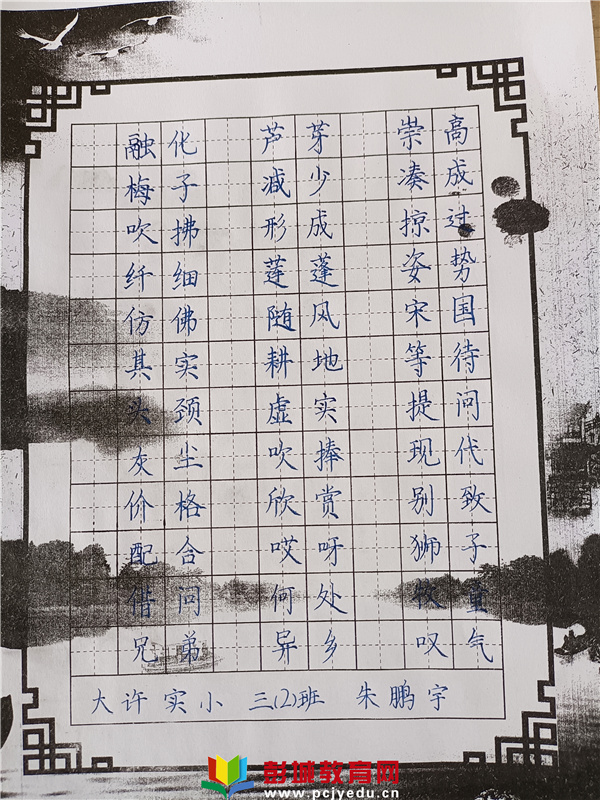 融化 芦芽 崇高
梅子 减少 凑成
吹拂 形成 掠过
纤细 莲蓬 姿势
仿佛 随风 宋国
其实 耕地 等待
头颈 虚实 提问
灰尘 吹捧 现代
价格 欣赏 别致
配合 哎呀 狮子
借问 何处 牧童
兄弟 异乡 叹气
大许实小 三(2)班 朱鹏宇
彭城教育网
www.pcjyedu.cn